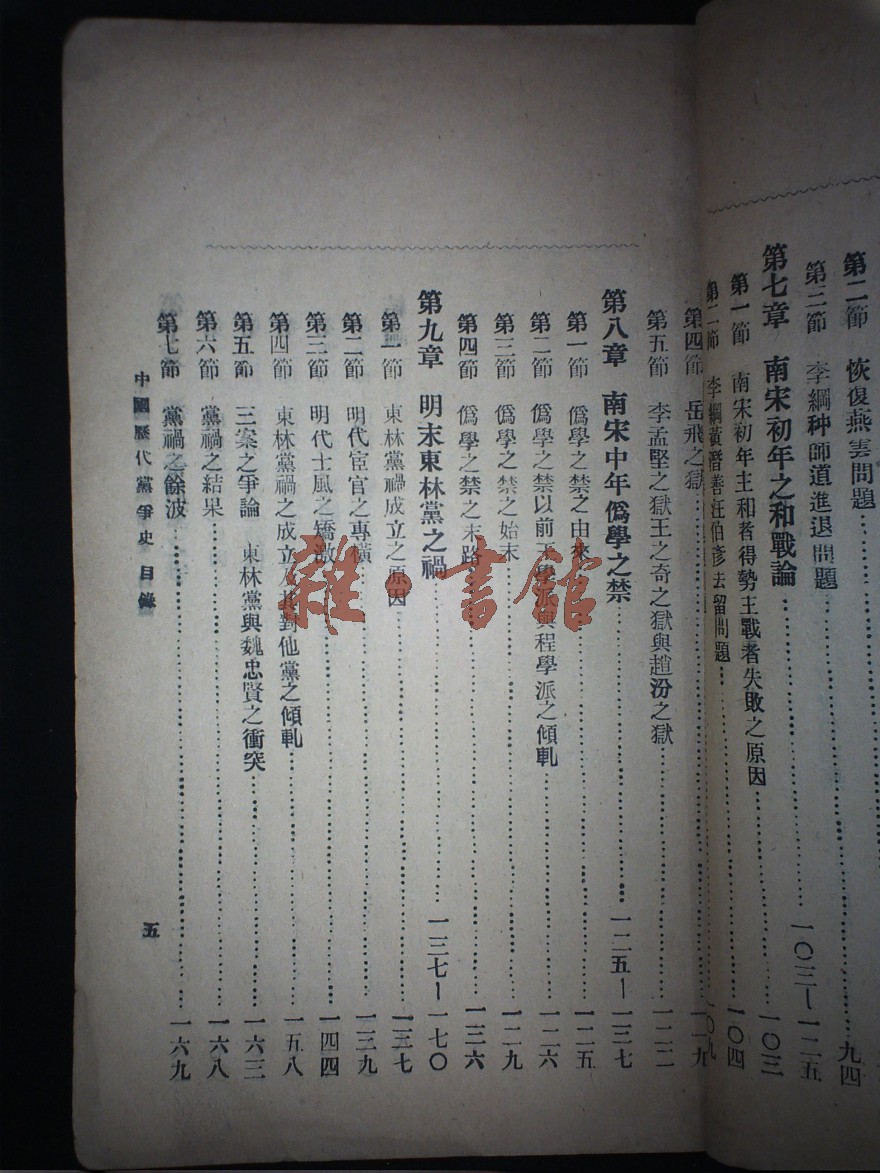 第二節 恢復燕雲問題……九四
第三節 李綱种師道進退問題
第七章 南宋初年之和戰論……一〇三—一二五
第一節 南宋初年主和者得勢主戰者失敗之原因……一〇三
第二節 李綱黃潛善汪伯彥去留問題……一〇四
一〇九
第四節 岳飛之獄……一一九
第五節 李孟堅之獄王之奇之獄與趙汾之獄……一二二
第八章 南宋中年僞學之禁……一二五—一三七
第一節 僞學之禁之由來……一二五
第二節 僞學之禁以前王學派與程學派之傾軋……一二六
第三節 僞學之禁之始末……一二九
第四節 僞學之禁之末路……一三六
第九章 明末東林黨之禍……一三七—一七〇
第一節 東林黨禍成立之原因……一三七
第二節 明代宦官之專橫……一三九
第三節 明代士風之矯激……一四四
第四節 東林黨禍之成立及其對他黨之傾軋……一五八
第五節 三案之爭論 東林黨與魏忠賢之衝突……一六三
第六節 黨禍之結果……一六八
第七節 黨禍之餘波……一六九
中國歷代黨爭史 目錄
五
雜·書館